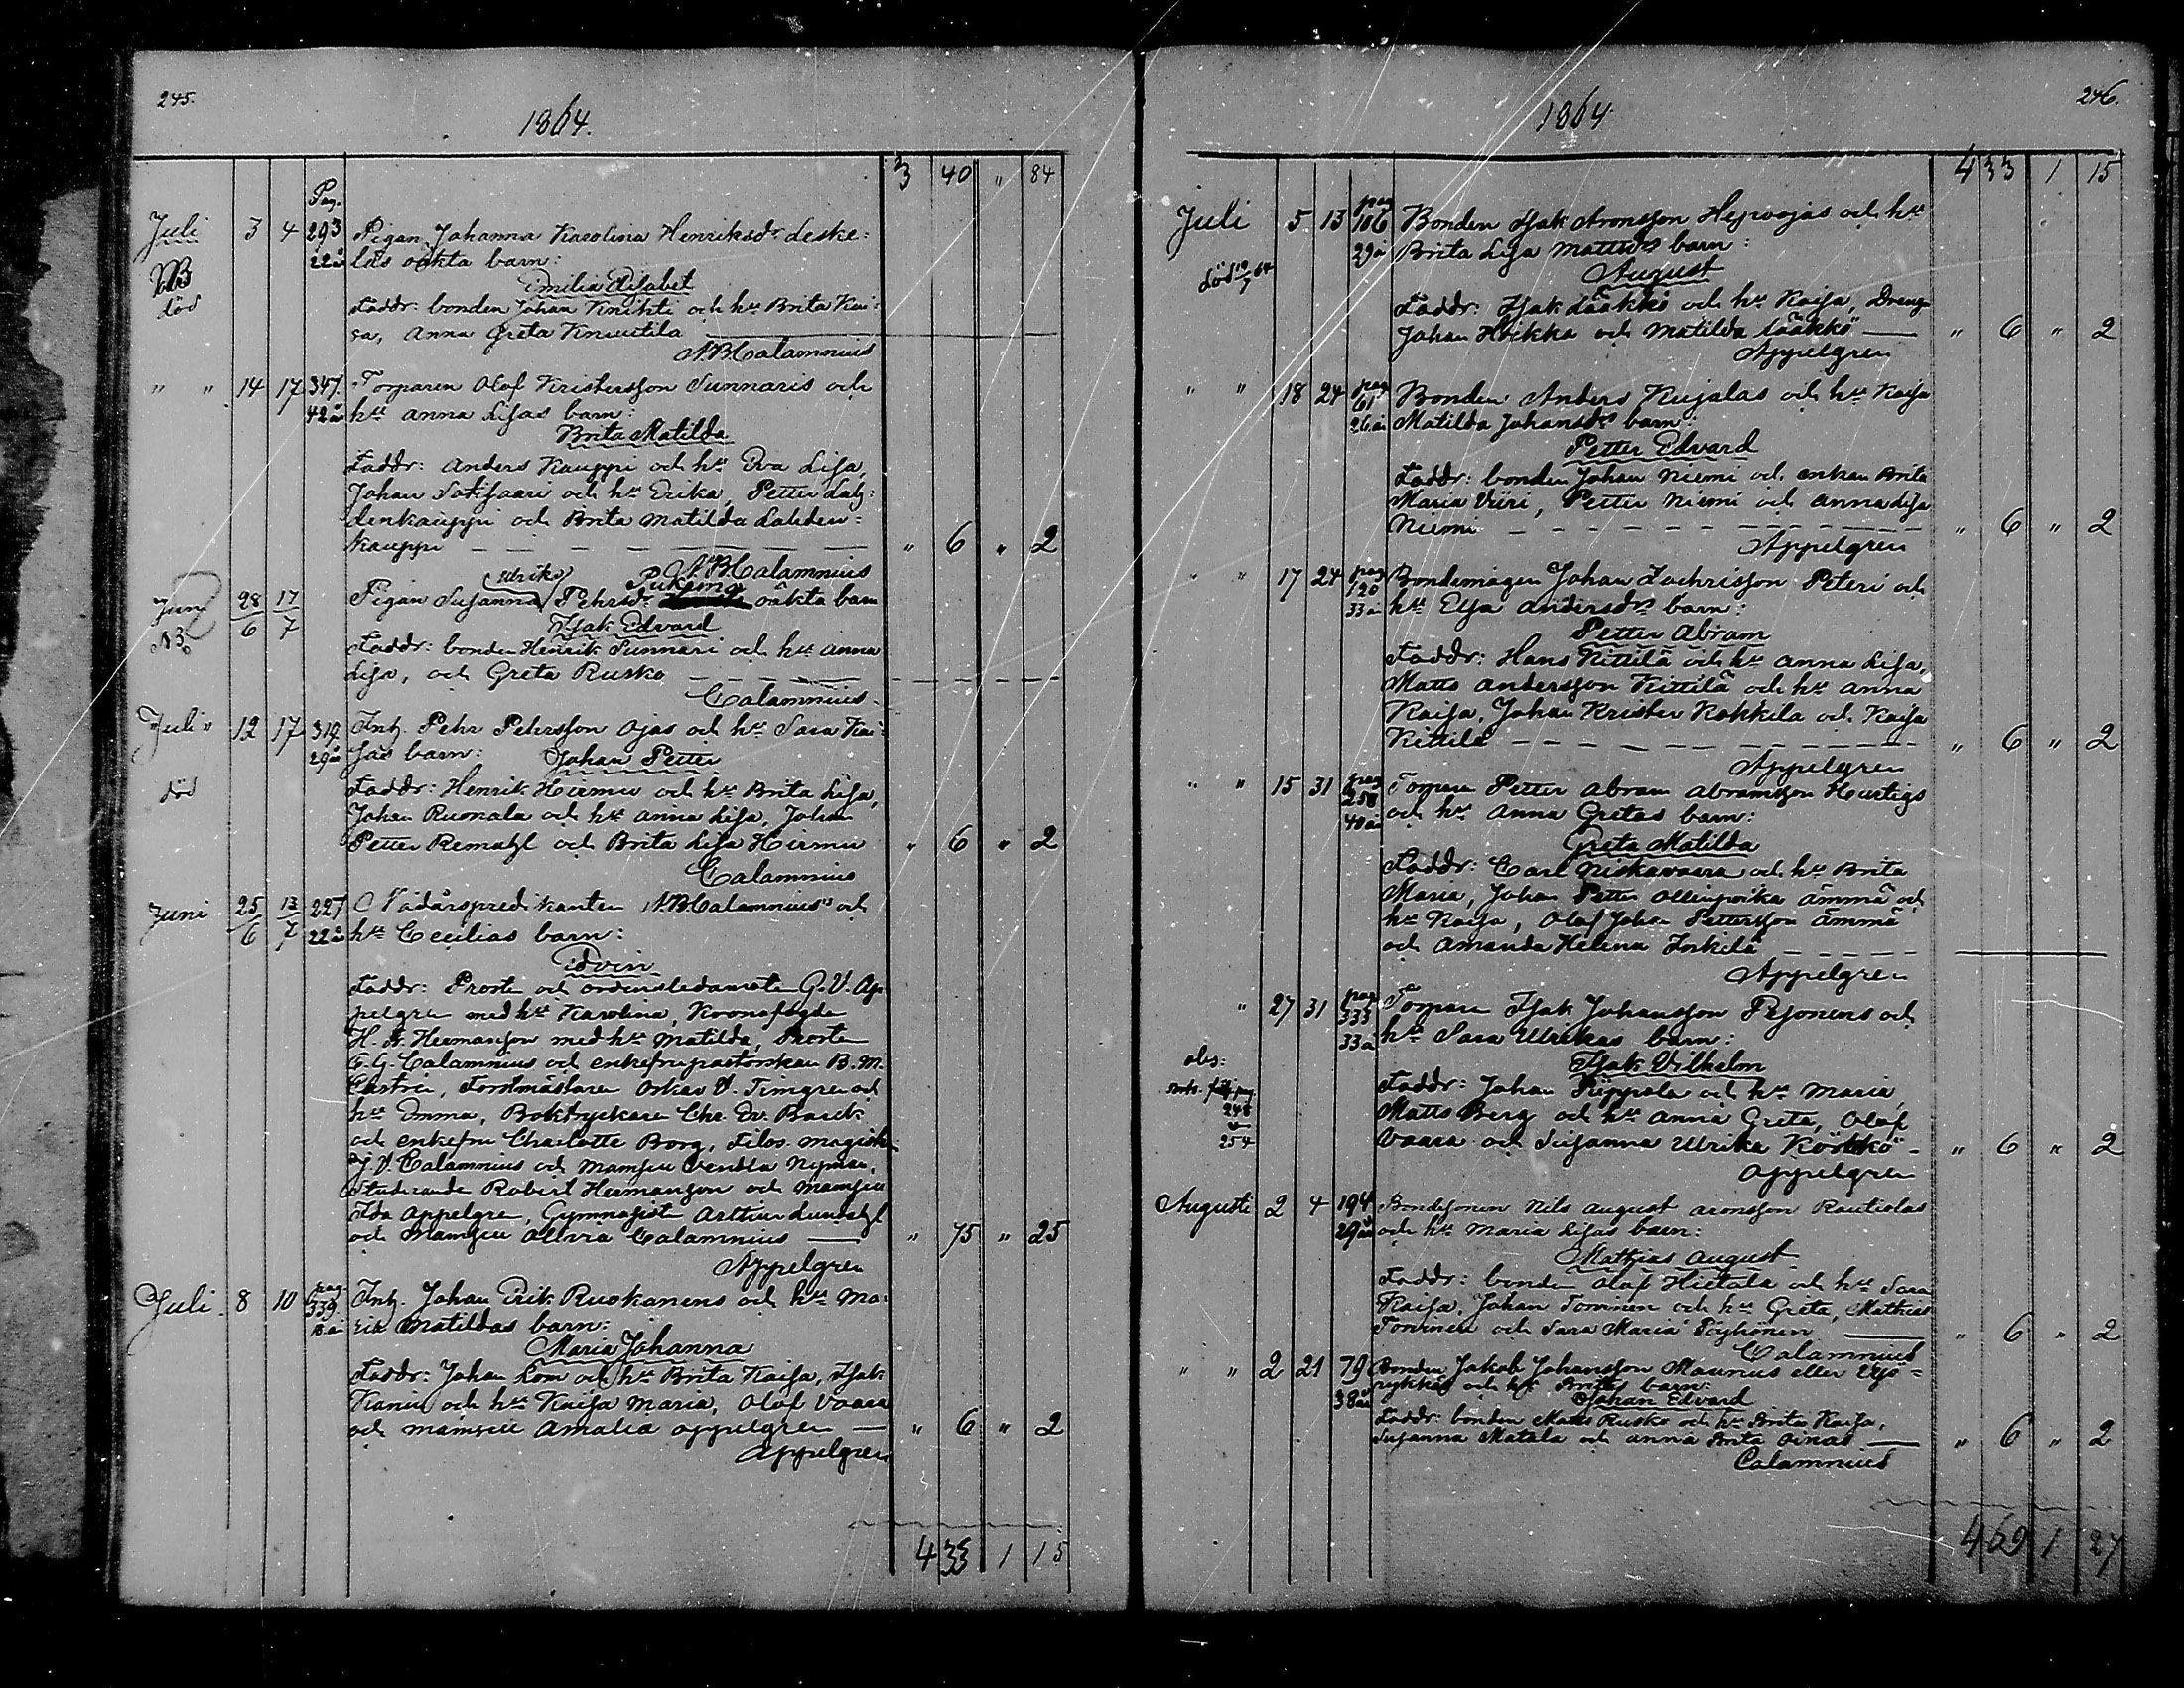 245.
1864.
3 40 " 84
Pag.
Juli 3 4 293 Pigan Johanna Karolina Henriksdr Leske:
22 år las oäkta barn:
NB
död
Emilia Elisabet
Faddr: bonden Johan Knikti och hu Brita Kai:
sa, Anna Greta Knuutila
NBCalamnius
" " 14 17 347. Torparen Olof Kristersson Sunnaris och
42 år hu Anna Lisas barn:
Brita Matilda
Faddr: Anders Kauppi och hu Eva Lisa,
Johan och hu Erika, Petter Lah:
denkauppi och Brita Matilda Lahden:
kauppi " 6 " 2
NBCalamnius
Ulrika
Juni 28/6 17/7 Pigan Susanna Pehrsdr oäkta barn
NB.
Isak Edvard
Faddr: bonden Henrik Sunnari och hu Anna
Lisa, och Greta Rusko
Calamnius
Juli 12 17 319 Inh. Pehr Pehrsson Ojas och hu Sara Kai:
29 år sas barn: Johan Petter
död
Faddr: Henrik Hiirmu och hu Brita Lisa,
Johan Ruonala och hu Anna Lisa, Johan
Petter Remahl och Brita Lisa Hiirmu " 6 " 2
Calamnius
Juni 25/6 13/7 227 Nådårspredikanten NBCalamnius' och
22 år hu Cecilias barn:
Edvin
Faddr: Prosten och ordensledamoten G. V. Ap
pelgren med hu Karolina, Kronofogden
H. A. Hermanson med hu Matilda, Prosten
F. G. Calamnius och enkefru pastorskan B. M.
Castrén, Forstmästaren Oskar V. Timgren och
hu Emma, Boktryckaren Chr. Ev. Barck
och enkefru Charlotte Borg, Filos. magister
J. V. Calamnius och Mamsell Vendla Nyman,
Studerande Robert Hermanson och Mamsell
Ida Appelgren, Gymnasisten Arthur Lundahl
och Mamsell Alivia Calamnius " 75 " 25
Appelgren
Juli 8 10 pag 339. Inh. Johan Erik Ruokanens och hu Ma:
ria Matildas barn:
Maria Johanna
Faddr: Johan Lom och hu Brita Kaisa, Isak
Kaniu och hu Kaisa Maria, Olof Vaara
och mamsell Amalia Appelgren " 6 " 2
Appelgren
4 33 1 15
246.
1864
4 33 1 15
Juli 5 13 pag 106 Bonden Isak Aronsson Hejvojas och hu
29 år Brita Lisa Mattsdrs barn:
död 10/7 64
August
Faddr: Isak Lääkkö och hu Kaisa, Dreng
Johan Hoikka och Matilda Lääkkö " 6 " 2
Appelgren
" " 18 24 pag 61 Bonden Anders Kujalas och hu Kaisa
26 år Matilda Johansdrs barn:
Petter Edvard
Faddr: bonden Johan Niemi och enkan Brita
Maria Viiri, Petter Niemi och Anna Lisa
Niemi " 6 " 2
Appelgren
" " 17 24 pag 120 Bondemågen Johan Zachrisson Peteri och
33 år hu Elsa Andersdrs barn:
Petter Abram
Faddr: Hans Kittilä och hu Anna Lisa,
Matts Andersson Kittilä och hu Anna
Kaisa, Johan Krister Kokkila och Kaisa
Kittilä " 6 " 2
Appelgren
" " 15 31 pag 258 Torparen Petter Abram Abramsson Hurtigs
40 år och hu Anna Gretas barn:
Greta Matilda
Faddr: Carl Niskavaara och hu Brita
Maria, Johan Petter Ollinpoika Ämmä och
hu Kaisa, Olof Johan Pettersson Ämmä
och Amanda Helena Inkilä
Appelgren
" 27 31 pag 333 Torparen Isak Johansson Pesonens och
33 år hu Sara Ulrikas barn:
obs:
Isak Vilhelm
248
254
Faddr: Johan Piippola och hu Maria,
Matts Berg och hu Anna Greta, Olof
Vaara och Susanna Ulrika Körkkö " 6 " 2
Appelgren
Augusti 2 4 194 Bondesonen Nils August Aronsson Rautiolas
29 år och hu Maria Lisas barn:
Mathias August
Faddr: bonden Olof Hietala och hu Sara
Kaisa, Johan Toninen och hu Greta, Mathias
Toninen och Sara Maria Pöyhönen " 6 " 2
Calamnius
" " 2 21 79 Bonden Jakob Johansson Maunus eller Yljo=
38 år rykkäs och hu Britas barn:
Johan Edvard
Faddr: bonden Matts Rusko och hu Brita Kaisa,
Susanna Matala och Anna Brita Oinas " 6 " 2
Calamnius
4 69 1 27